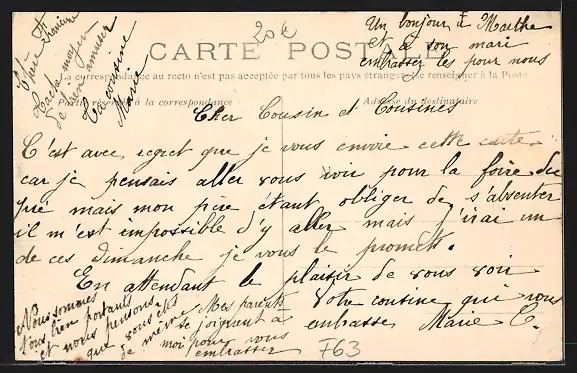 20€
Un bonjour à Marthe
et à son mari
embrasser les pour nous
CARTE POSTALE
La correspondance au recto n'est pas acceptée par tous les pays étrangers (Se renseigner à la Poste
Partie réservée à la correspondance
Adresse du destinataire
Tache moyen
de bien t'amuser
Ta cousine
Marie
Cher Cousin et Cousines
C'est avec regret que je vous envoie cette carte
car je pensais aller vous voir pour la foire du
pré mais mon père étant obliger de s'absenter
il m'est impossible d'y aller mais j'irai un
de ces dimanche je vous le promets.
En attendant le plaisir de vous voir
Votre cousine qui vous
embrasse Marie C.
Nous sommes
tous bien portants
et nous pensons
que vous êtes
de même
Mes parents
se joignent à
moi pour vous
embrasser
F63